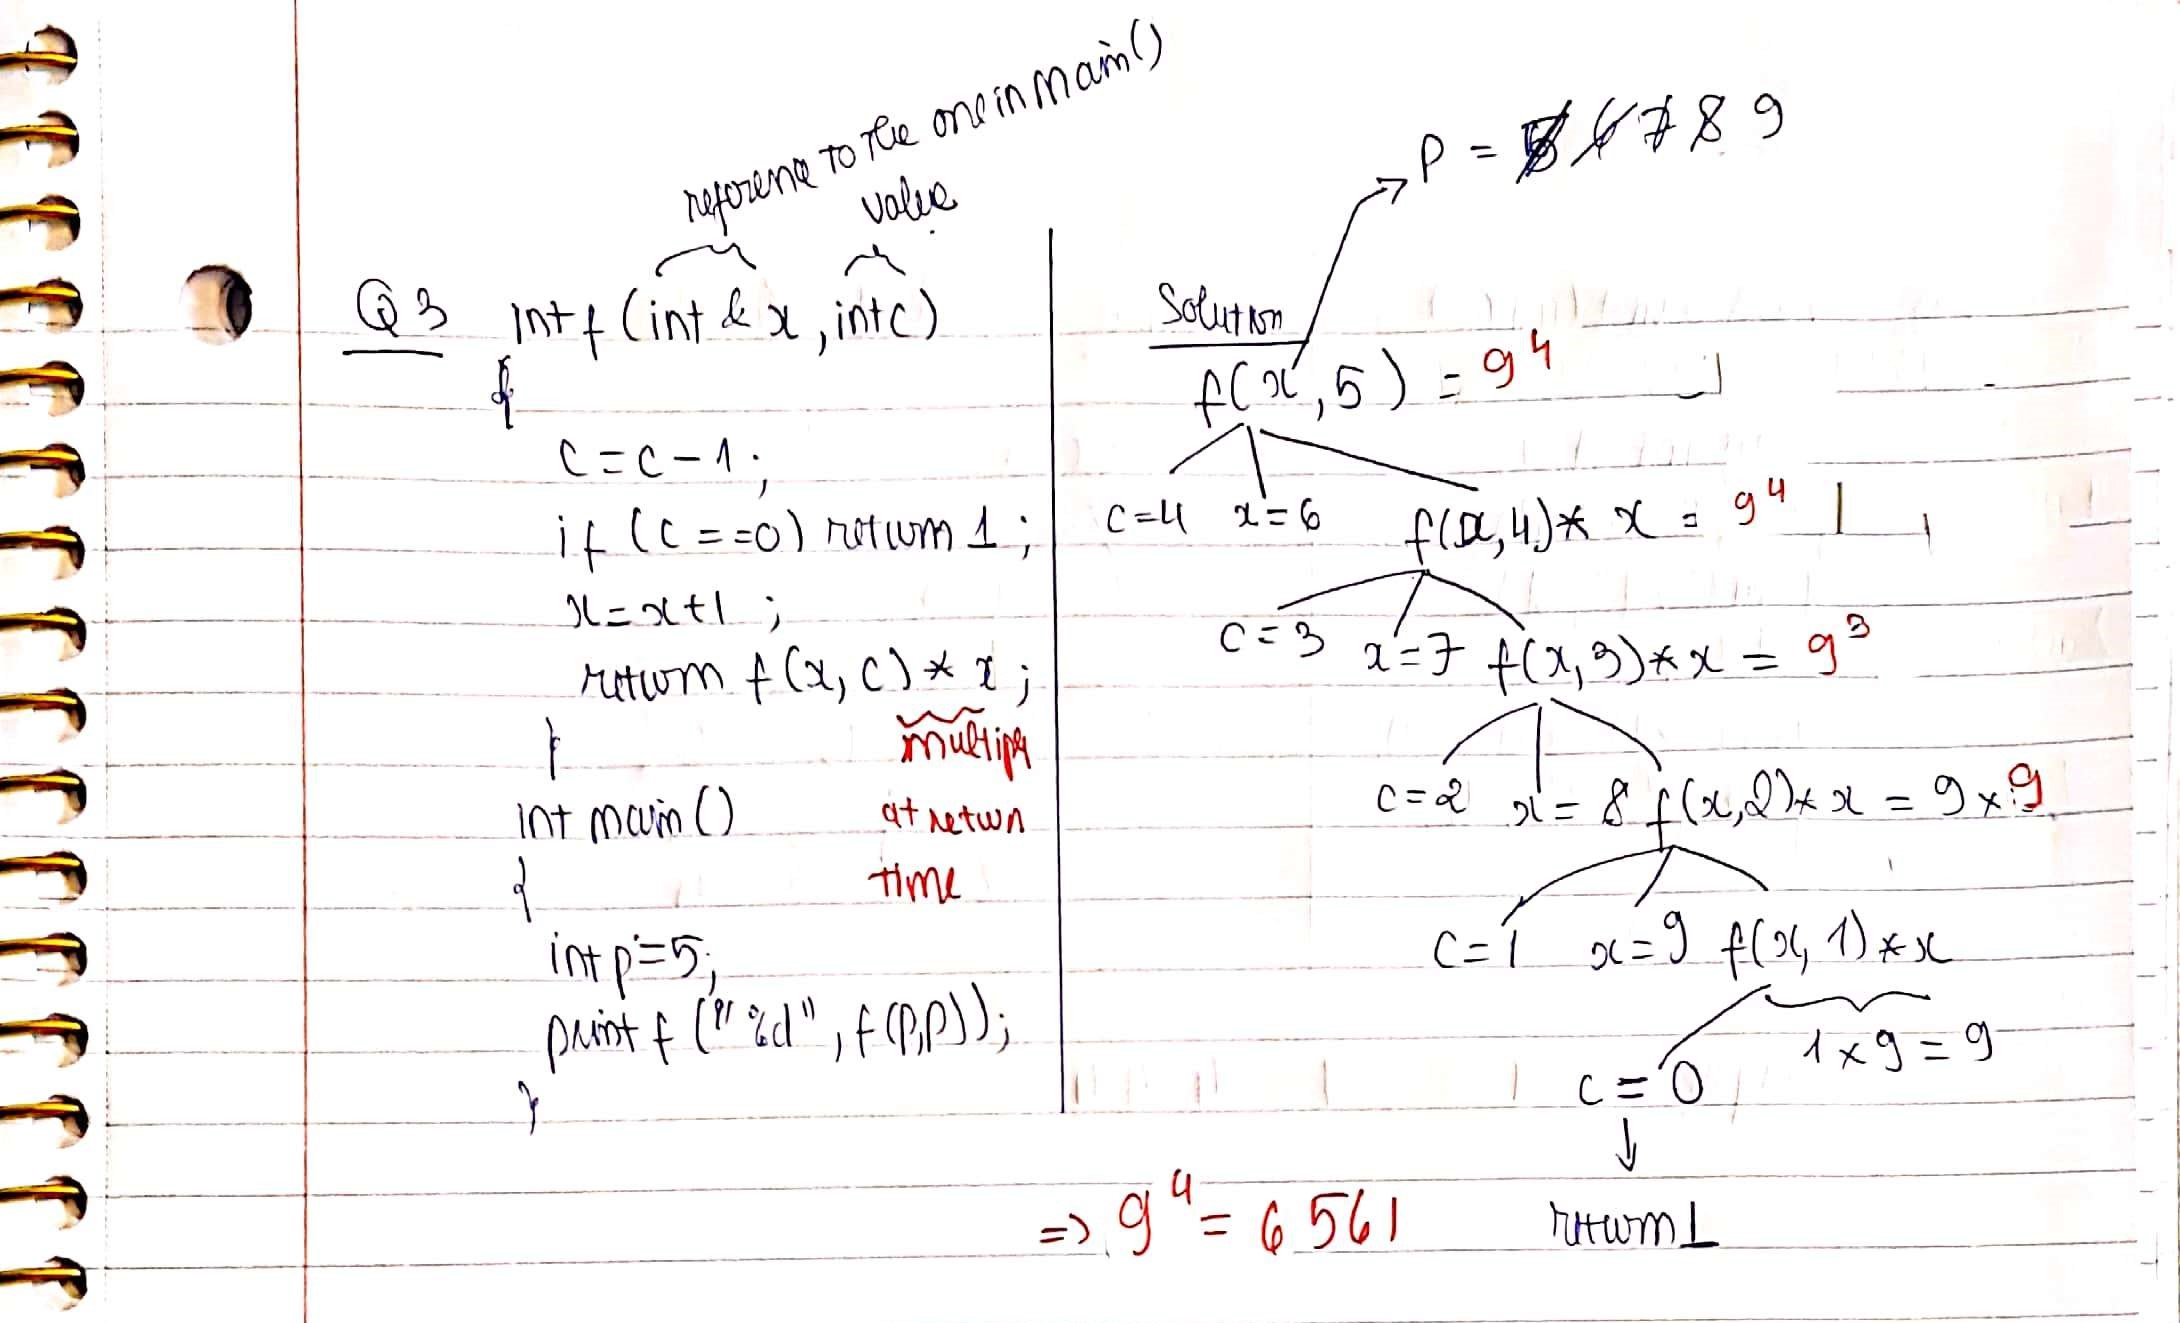 reference to the one in main()
value
P = 5 6 7 8 9
Q3 int f (int & x, int c)
{
c = c - 1;
if (c == 0) return 1;
x = x + 1;
return f (x, c) * x;
}
multiply
at return
time
int main()
{
int p = 5;
printf ("%d", f(p,p));
}
Solution
f(x, 5) = 9⁴
c=4 x=6 f(x,4)* x = 9⁴
c=3 x=7 f(x,3)*x = 9³
c=2 x=8 f(x,2)*x = 9×9
c=1 x=9 f(x,1)*x
c=0 1×9=9
↓
return 1
=> 9⁴ = 6561